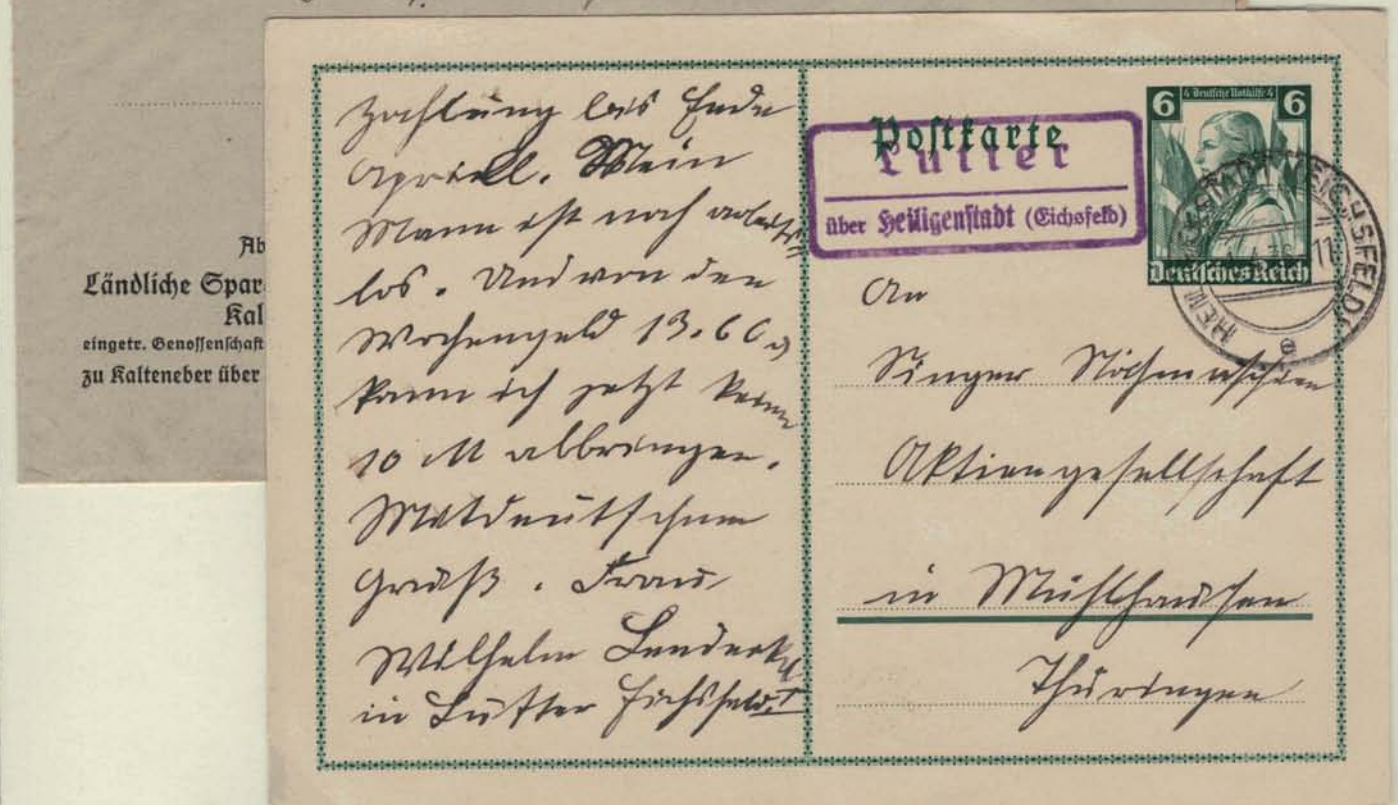 Ab
Ländliche Spar
Kal
eingetr. Genossenschaft
zu Kalteneber über
Zahlung bis Ende
Apriell. Mein
Mann ist noch arbeits
los. Und von den
Wochengeld 13.60
kann ich jetzt keine
10 M abbringen.
Mit deutschem
Gruß. Frau
Wilhelm
in Lutter Eichsfeld.
Postkarte
Lutter
über Heiligenstadt (Eichsfeld)
6 Deutsche Nothilfe 4 6
Deutsches Reich
(EICHSFELD)
11
e
An
Singer Nähmaschinen
Aktiengesellschaft
in Mühlhausen
Thüringen